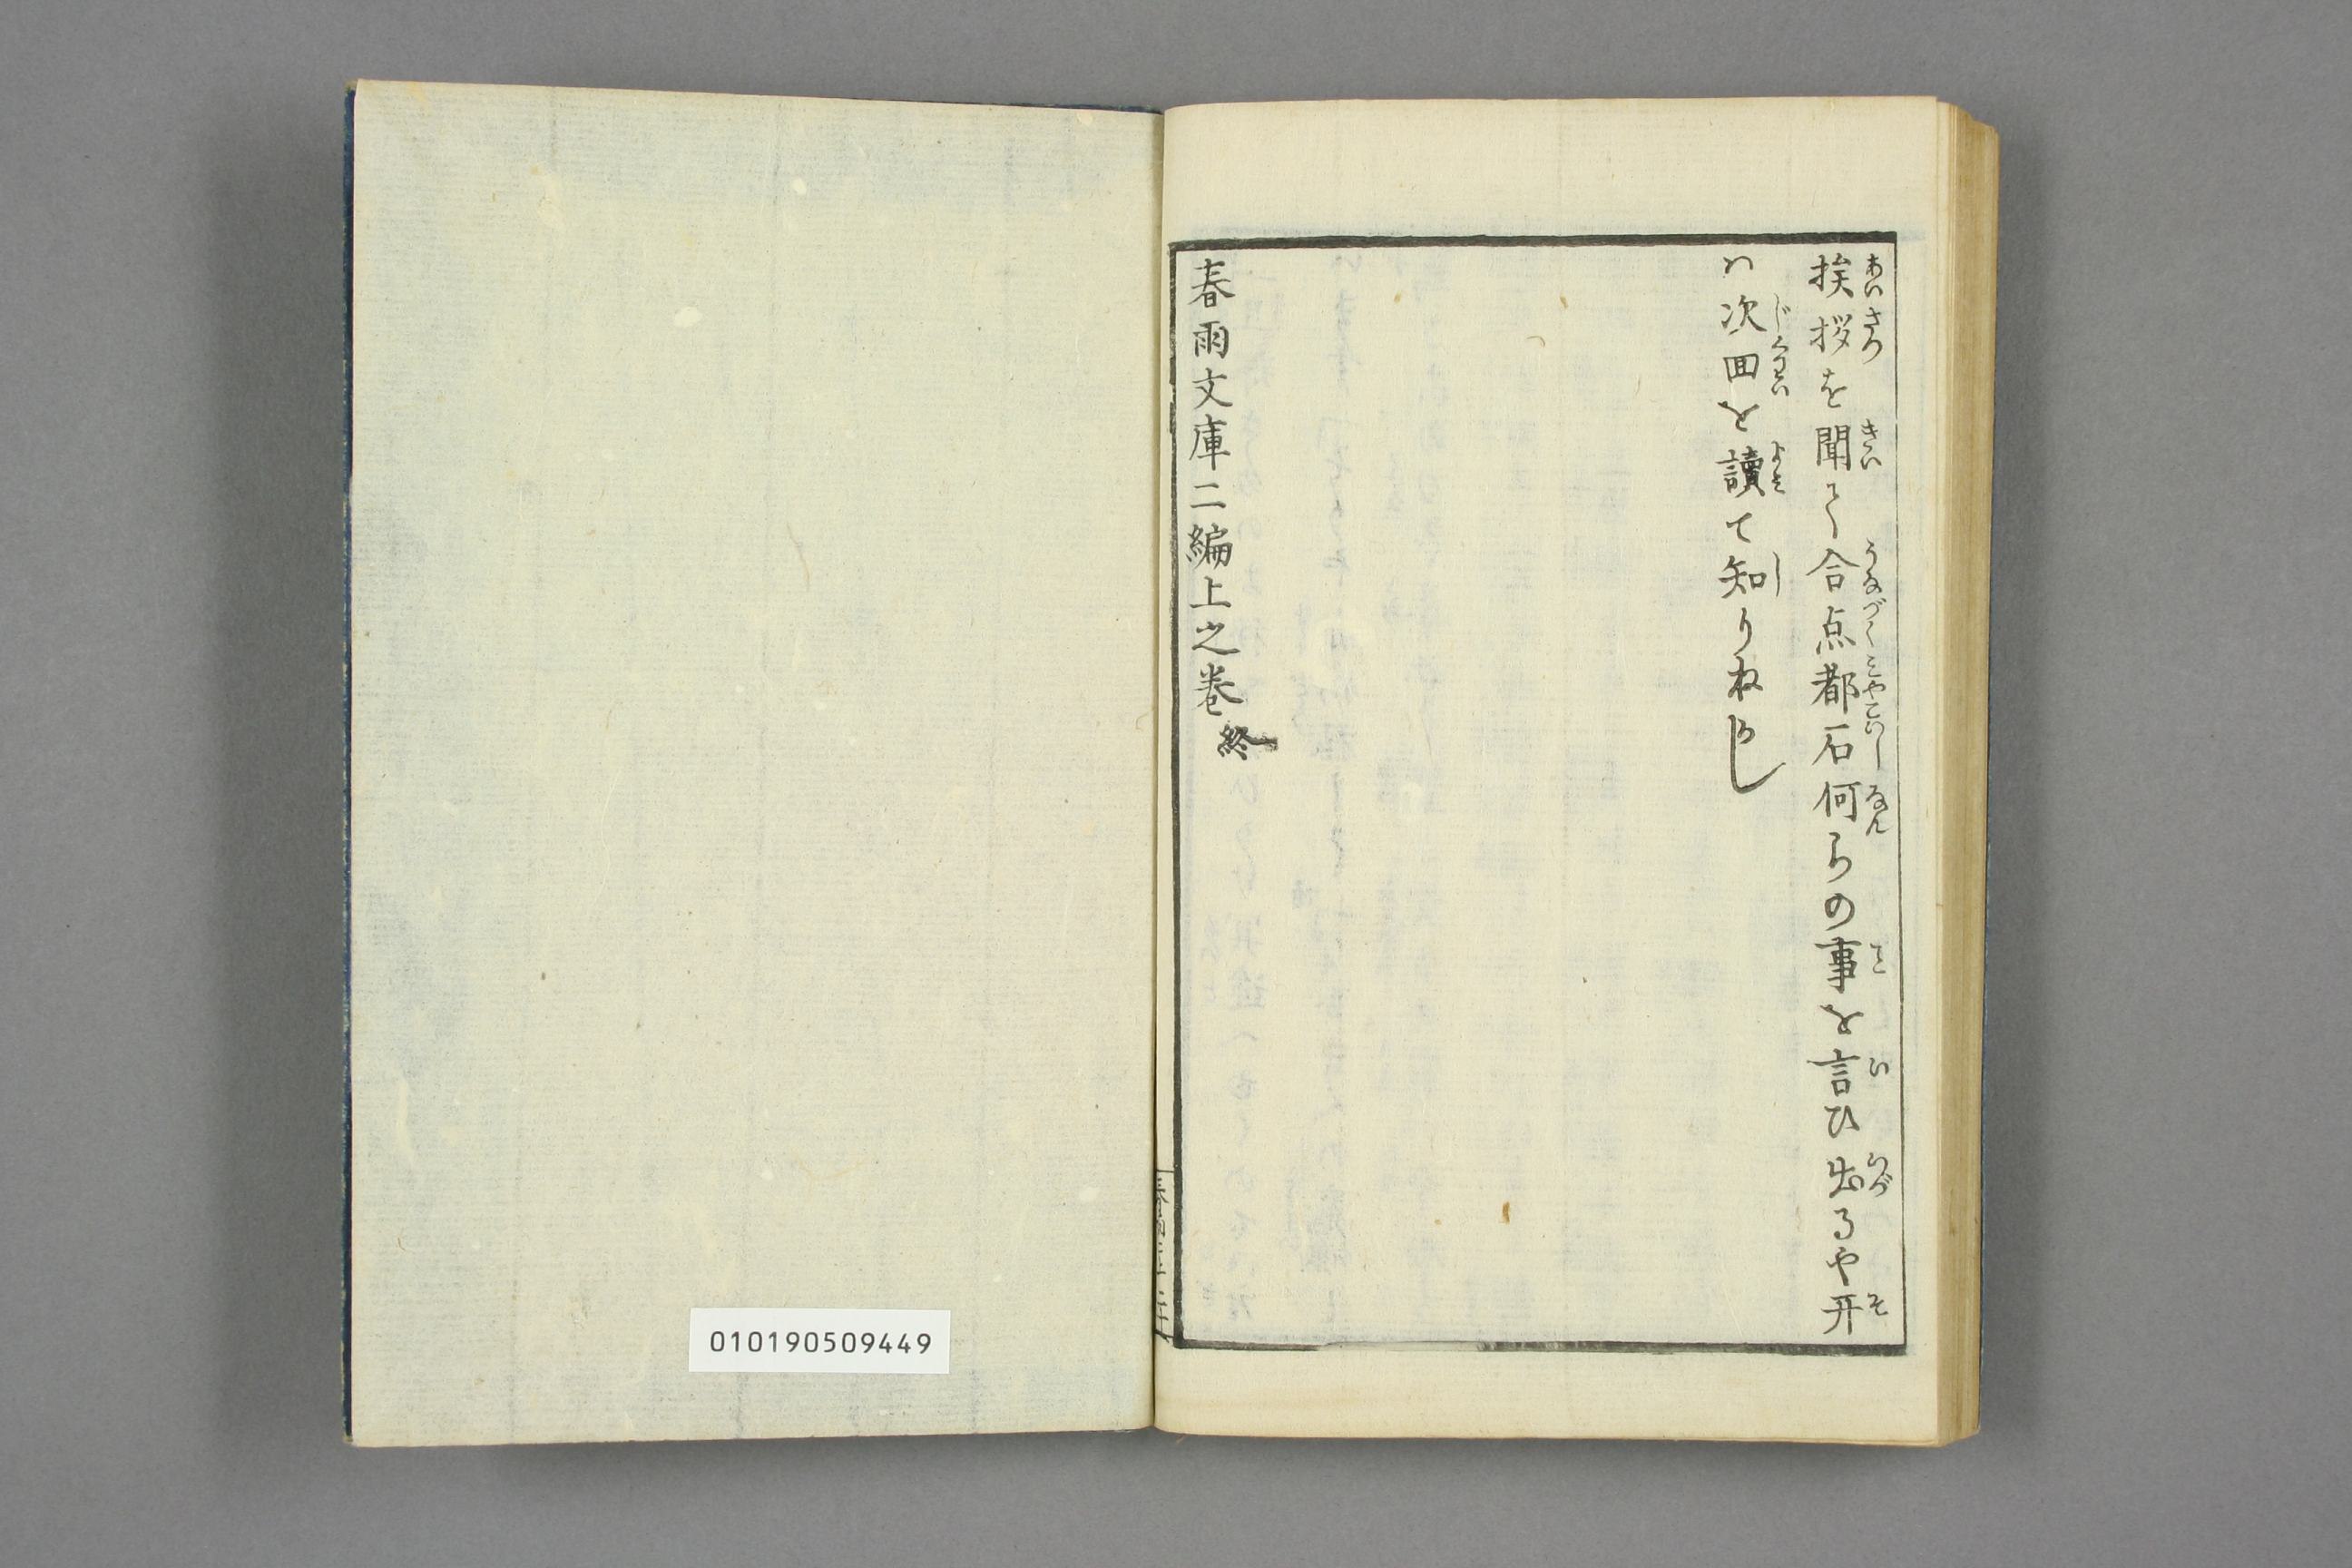 挨拶を聞て合点都石何らの事を言ひ出るや开
ハ次回を讀て知りねかし
春雨文庫二編上之巻終
010190509449